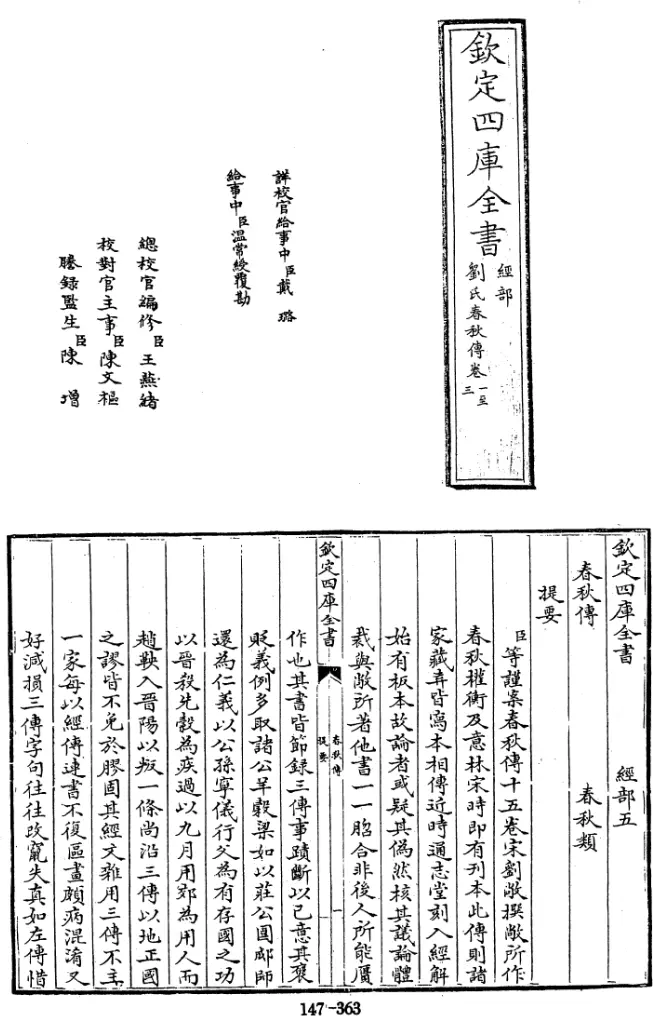 欽定四庫全書
經部
劉氏春秋傳卷一至三
詳校官給事中臣戴璐
給事中臣溫常綬覆勘
總校官編修臣王燕緒
校對官主事臣陳文樞
謄錄監生臣陳增
欽定四庫全書 經部五
春秋傳 春秋類
提要
臣等謹案春秋傳十五卷宋劉敞撰敞所作
春秋權衡及意林宋時即有刊本此傳則諸
家藏弆皆寫本相傳近時通志堂刻入經解
始有板本故論者或疑其偽然核其議論體
裁與敞所著他書一一脗合非後人所能贋
欽定四庫全書
春秋傳
提要
一
作也其書皆節錄三傳事蹟斷以己意其褒
貶義例多取諸公羊穀梁如以莊公圍郕師
還為仁義以公孫寧儀行父為有存國之功
以晉殺先縠為疾過以九月用郊為用人而
趙鞅入晉陽以叛一條尚沿三傳以地正國
之謬皆不免於膠固其經文雜用三傳不主
一家每以經傳連書不復區畫頗病混淆又
好減損三傳字句往往改竄失真如左傳惜
147-363